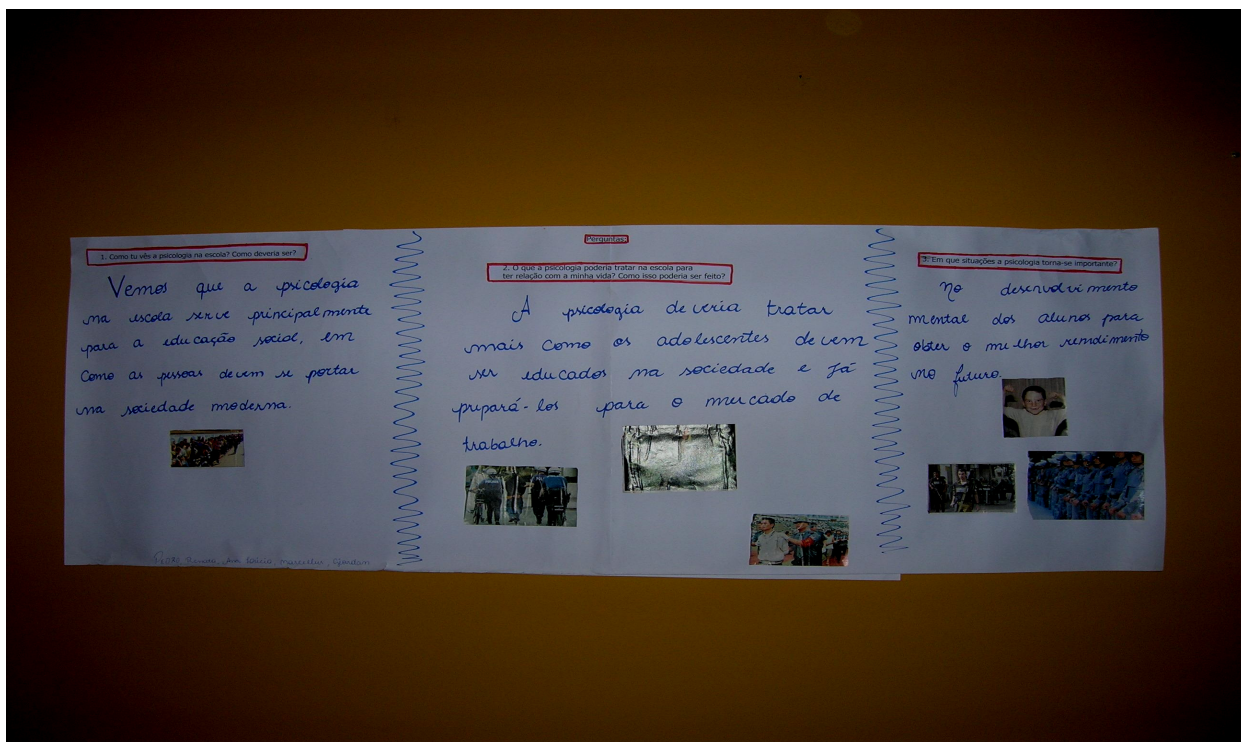 Perguntas:
1. Como tu vês a psicologia na escola? Como deveria ser?
Vemos que a psicologia
na escola serve principalmente
para a educação social, em
como as pessoas devem se portar
na sociedade moderna.
2. O que a psicologia poderia tratar na escola para
ter relação com a minha vida? Como isso poderia ser feito?
A psicologia deveria tratar
mais como os adolescentes devem
ser educados na sociedade e já
prepará-los para o mercado de
trabalho.
3. Em que situações a psicologia torna-se importante?
No desenvolvimento
mental dos alunos para
obter o melhor rendimento
no futuro.